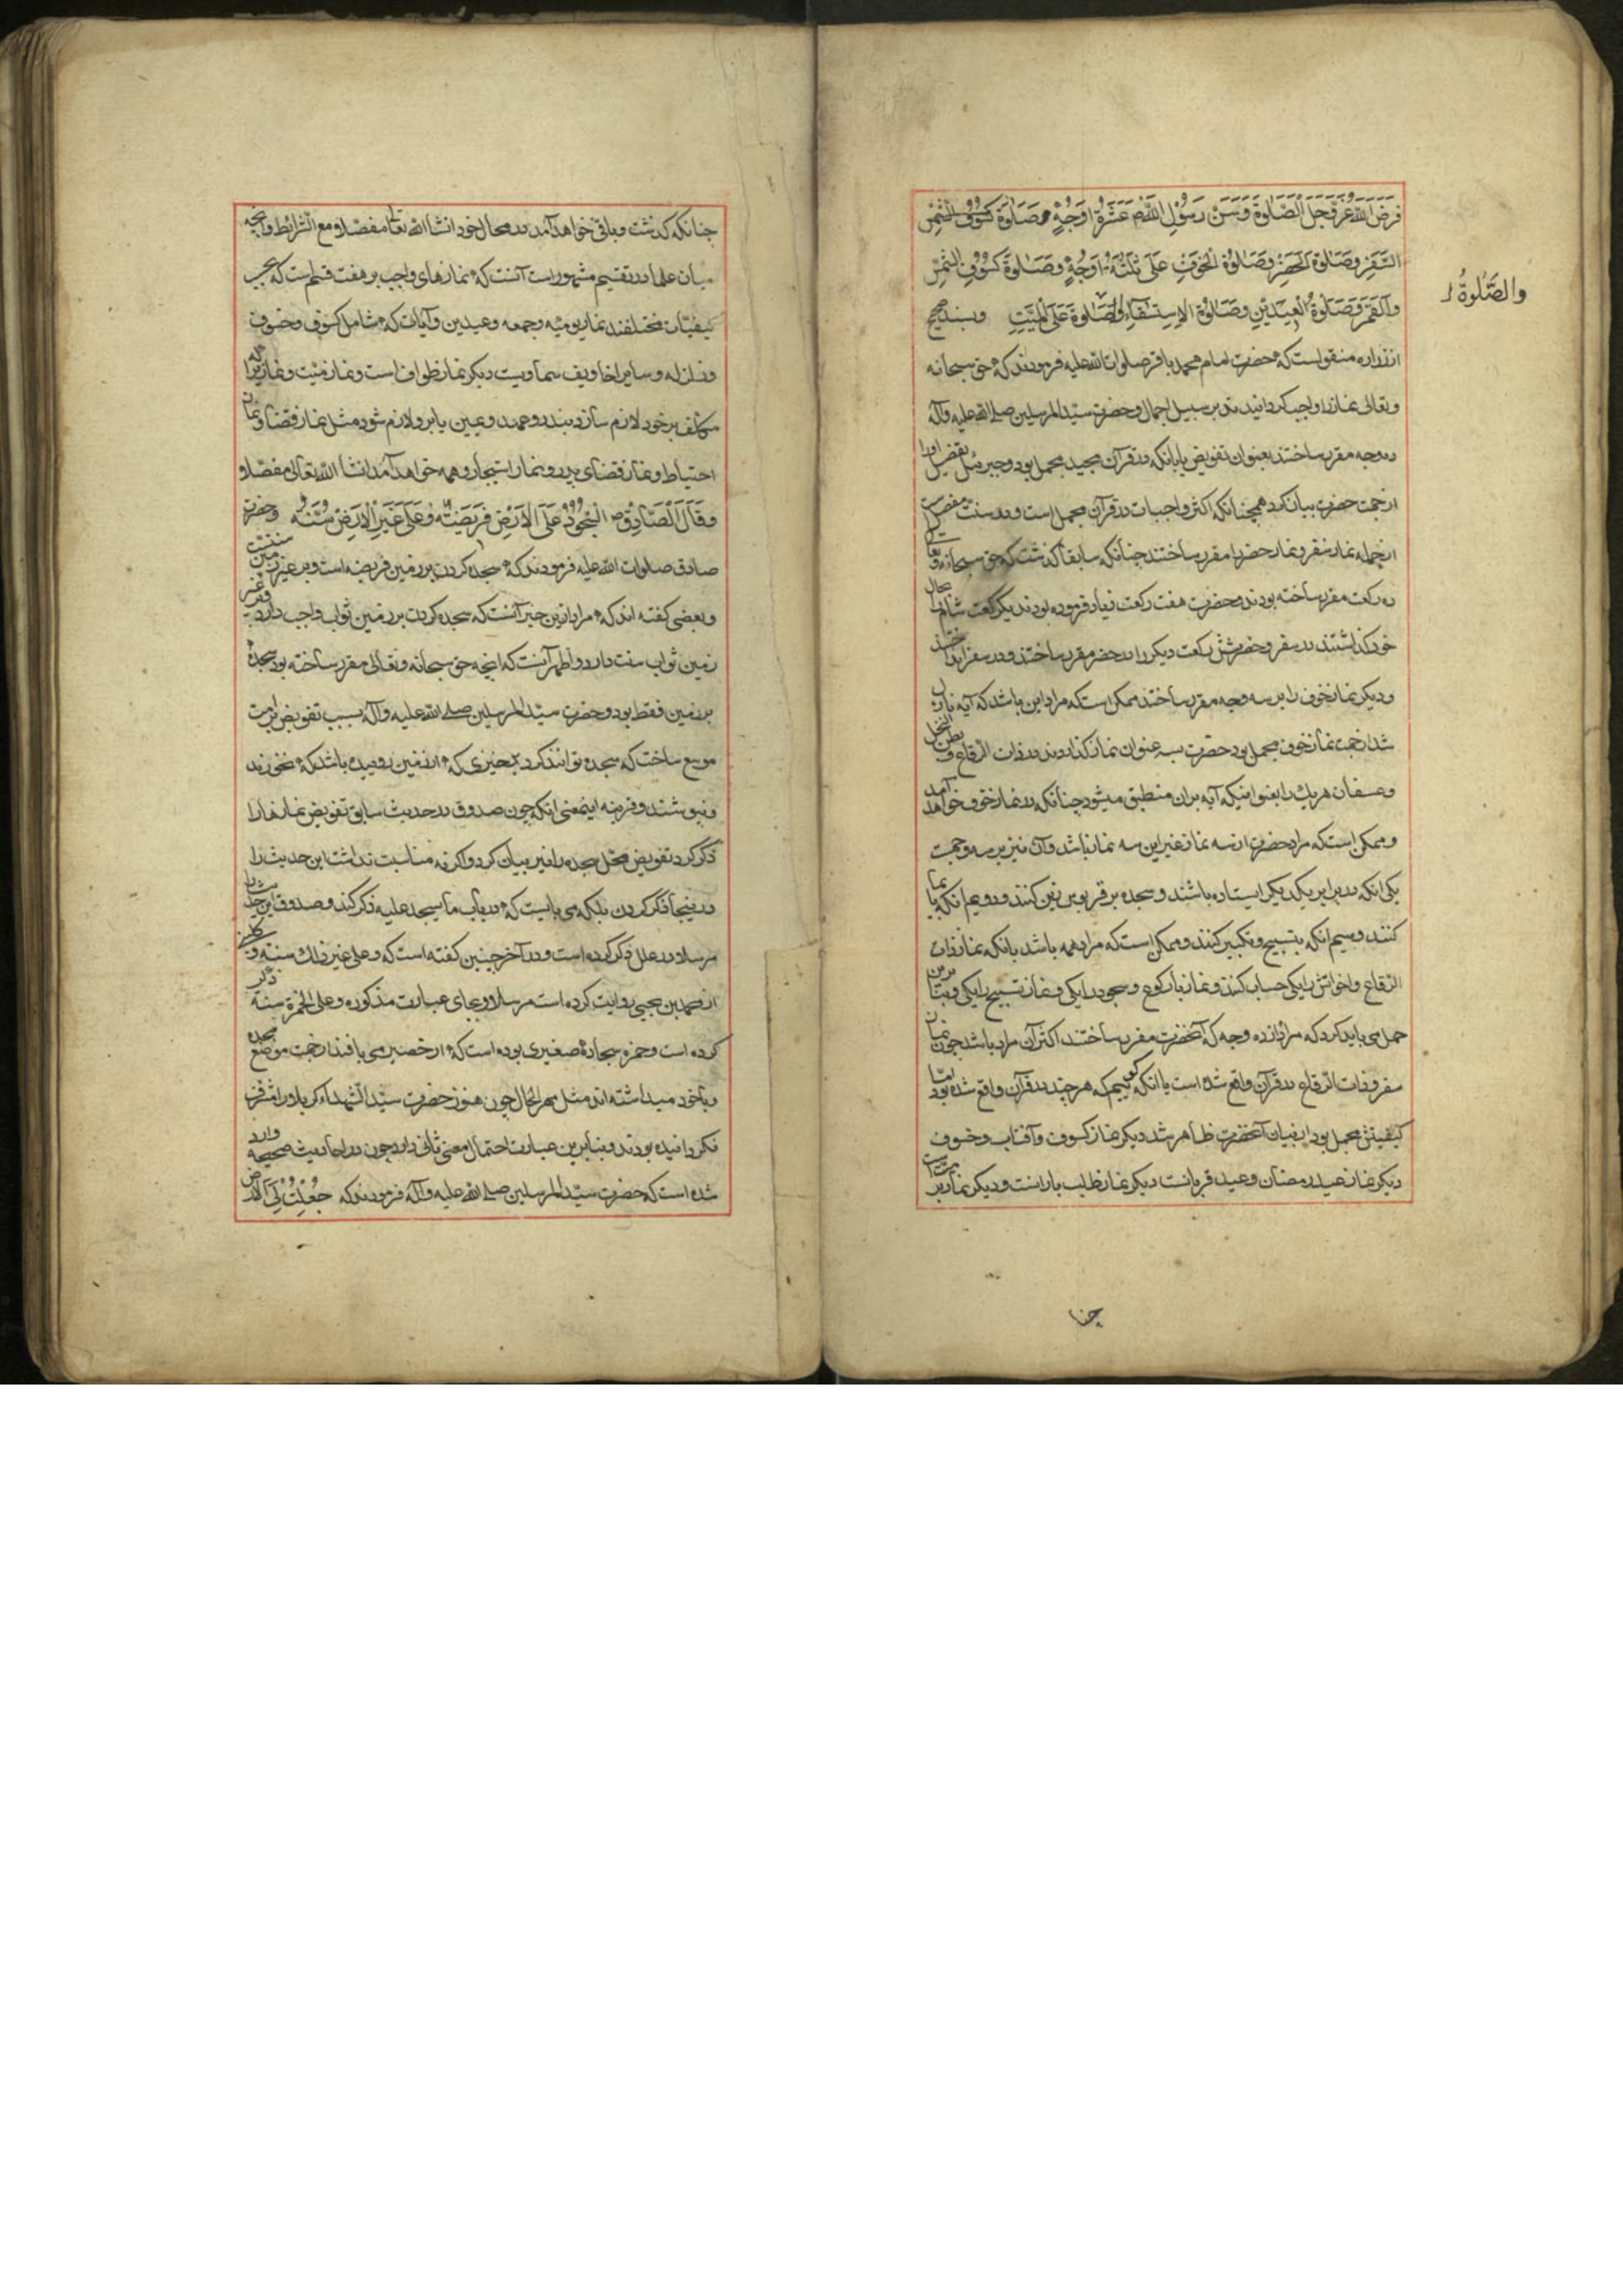 فَرَضَ اللّٰهُ عَزَّ وَجَلَّ الصَّلٰوةَ وَسَنَّ رَسُوْلُ اللّٰهِ ص عَشَرَةَ اَوْجُهٍ صَلٰوةَ
السَّفَرِ وَصَلٰوةَ الْحَضَرِ وَصَلٰوةَ الْخَوْفِ عَلٰى ثَلٰثَةِ اَوْجُهٍ وَصَلٰوةَ كُسُوْفِ الشَّمْسِ
وَالْقَمَرِ وَصَلٰوةَ الْعِيْدَيْنِ وَصَلٰوةَ الْاِسْتِسْقَاءِ وَالصَّلٰوةَ عَلَى الْمَيِّتِ وبسند صحیح
والصَّلٰوةُ
از زراره منقولست که حضرت امام محمد باقر صلوات الله علیه فرمودند که حق سبحانه
وتعالی نماز را واجب گردانیدند بر سبیل اجمال وحضرت سید المرسلین صلی الله علیه وآله
ده وجه مقرر ساختند بعنوان تفویض یا بانکه در قرآن مجید مجمل بود وجبرئیل تفصیل اورا
از جهت حضرت بیان کرد همچنانکه اکثر واجبات در قرآن مجمل است ودر سنت مفصل
ازجمله نماز سفر ونماز حضر را مقرر ساختند چنانکه سابقا گذشت که حق سبحانه وتعالی
ده رکعت مقرر ساخته بودند وحضرت هفت رکعت زیاد فرموده بودند یک رکعت شام را بحال
خود گذاشتند در سفر وحضر وشش رکعت دیگر را در حضر مقرر ساختند ودر سفر انداختند
ودیگر نماز خوف را بر سه وجه مقرر ساختند ممکن است که مراد این باشد که آیه نازل
شد از جهت نماز خوف مجمل بود حضرت بسه عنوان نماز گذاردند در ذات الرقاع و بطن النخل
وعسفان هر یک را بعنوانیکه آیه بران منطبق میشود چنانکه در نماز خوف خواهد آمد
وممکن است که مراد حضرت از سه نماز غیر این سه نماز باشد وآن نیز بر سه وجهست
یکی انکه در برابر یکدیگر ایستاده باشند وسجده بر قربوس زین کنند ودویم انکه بایما
کنند وسیم انکه بتسبیح وتکبیر کنند وممکن است که مراد همه باشد بانکه نماز ذات
الرقاع واخواتش را یکی حساب کنند ونماز با رکوع وسجود را یکی ونماز تسبیح را یکی وبنابرین
حمل می باید کرد که مراد از ده وجه که آنحضرت مقرر ساختند اکثر آن مراد باشد چون نماز
سفر وذات الرقاع در قرآن واقع شده است یا انکه گوییم که هر چند در قرآن واقع شده بود اما
کیفیتش مجمل بود از بیان آنحضرت ظاهر شد دیگر نماز کسوف وآفتاب وخسوف
دیگر نماز عید رمضان وعید قربانست دیگر نماز طلب بارانست ودیگر نماز بر میت است
چنا
چنانکه گذشت وباقی خواهد آمد در محال خود انشا الله تعالی مفصلا ومع الشرائط وآنچه
میان علما در تقسیم مشهور است آنست که نمازهای واجب بر هفت قسم است که بحسب
کیفیات مختلفند نماز یومیه وجمعه وعیدین وآیات که شامل کسوف وخسوف
وزلزله وسایر اخاویف سماویست دیگر نماز طواف است ونماز میت ونمازی را که
مکلف بر خود لازم سازد بنذر وعهد ویمین یا برو لازم شود مثل نماز قضا ونماز
احتیاط ونماز قضای پدر ونماز استیجار وهمه خواهد آمد انشا الله تعالی مفصلا و
وَقَالَ الصَّادِقُ ع السُّجُوْدُ عَلَى الْاَرْضِ فَرِيْضَةٌ وَعَلٰى غَيْرِ الْاَرْضِ سُنَّةٌ وحضرت
صادق صلوات الله علیه فرمودند که سجده کردن بر زمین فریضه است وبر غیر زمین سنتست
وبعضی گفته اند که مراد ازین خبر آنست که سجده کردن بر زمین ثواب واجب دارد وبر غیر
زمین ثواب سنت دارد واظهر آنست که انچه حق سبحانه وتعالی مقرر ساخته بود سجده
بر زمین فقط بود وحضرت سید المرسلین صلی الله علیه وآله بسبب تفویض بر امت
موسع ساخت که سجده توانند کرد بچیزی که از زمین روییده باشد که نخورند
ونپوشند وقرینه اینمعنی انکه چون صدوق در حدیث سابق تفویض نمازها را
ذکر کرد تفویض محل سجده را نیز بیان کرد واگر نه مناسبت نداشت این حدیث را
در اینجا ذکر کردن بلکه می بایست که در باب ما یسجد علیه ذکر کند وصدوق این حدیث را
مرسلا در علل ذکر کرده است ودر آخر چنین گفته است که وعلی غیر ذلك سنة و کلینی
از محمد بن یحیی روایت کرده است مرسلا وبجای عبارت مذکوره وعلی الخمرة سنة ذکر
کرده است وخمره سجاده صغیری بوده است که از حصیر می بافند از جهت موضع سجده
وباخود میداشته اند مثل مهر الحال چون هنوز حضرت سید الشهداء کربلا را مشرف
نکردانیده بودند وبنابرین عبارت احتمال معنی ثانی دارد چون در احادیث صحیحه وارد
شده است که حضرت سید المرسلین صلی الله علیه وآله فرمودند که جُعِلَتْ لِيَ الْاَرْضُ